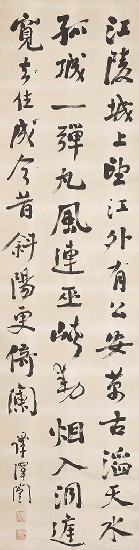 江陵城上望江外有公安萬古滔天水
孤城一彈丸風連巫峽動烟入洞庭
寬去住成今昔斜陽更倚闌
譚澤闓